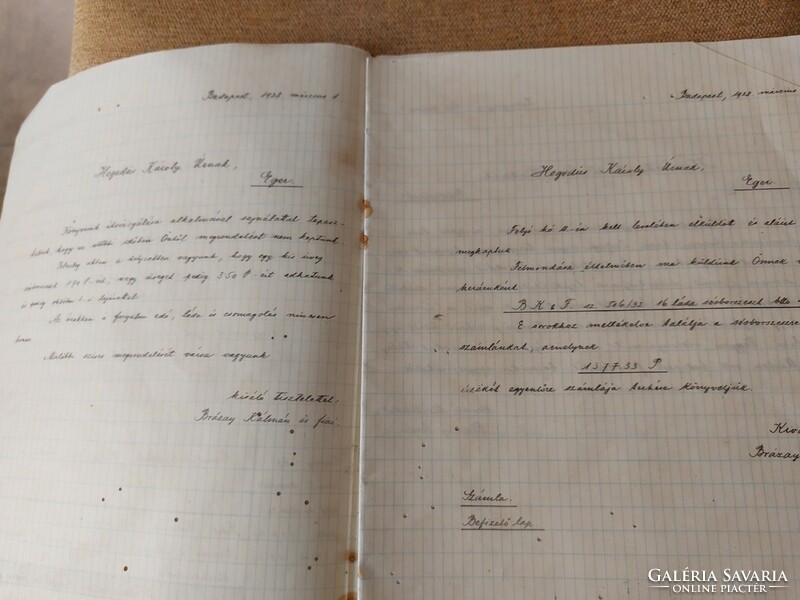 Budapest, 1938. március 1
Hegedűs Károly Úrnak,
Eger.
Könyveink átvizsgálása alkalmával sajnálattal tapasz-
hogy az utóbbi időben Öntől megrendelést nem kaptunk.
abban a helyzetben vagyunk, hogy egy kis üveg
nagy üveget pedig 3.50 P-ért adhatunk
Az árakban a forgalmi adó, láda és csomagolás nincsen
benne
Mielőbbi szives megrendelését várva vagyunk
kiváló tisztelettel:
Brázay Kálmán és fiai.
Budapest, 1938. március
Hegedűs Károly Úrnak,
Eger.
Folyó hó in kelt levelében elküldött és aláírt
megkaptuk
értelmében ma küldünk Önnek
B K & F sz 506/32 16 láda sósborszeszt btto
E sorokhoz mellékelve találja a sósborszeszre
számlánkat, amelynek
1377.33 P
értékét egyenlőre számlája terhére könyveljük.
Brázay
Számla.
Befizető lap
GALÉRIA SAVARIA
ONLINE PIACTÉR